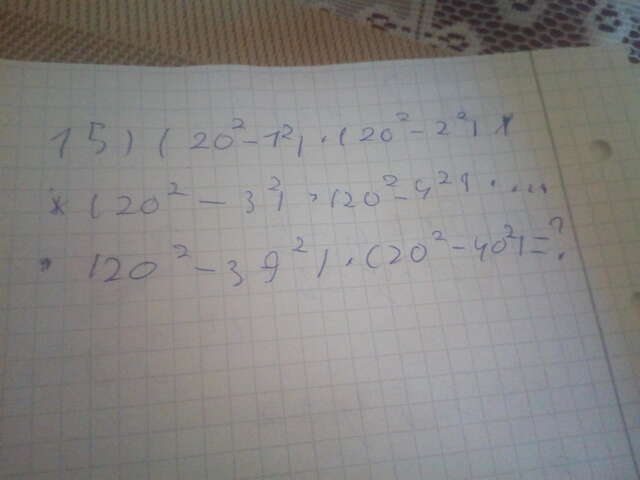 15) (20²-1²)·(20²-2²)·
·(20²-3²)·(20²-4²)·...
·(20²-39²)·(20²-40²)=?